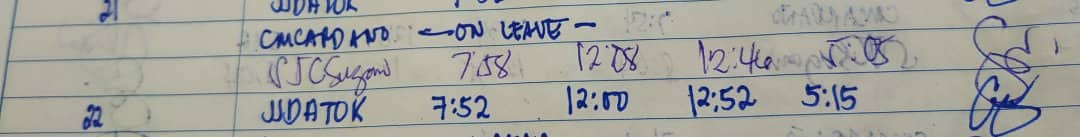 21 JJDATOK
CMCAPDANO — ON LEAVE —
7:58 12:08 12:46 5:05
22 JJDATOK 7:52 12:00 12:52 5:15